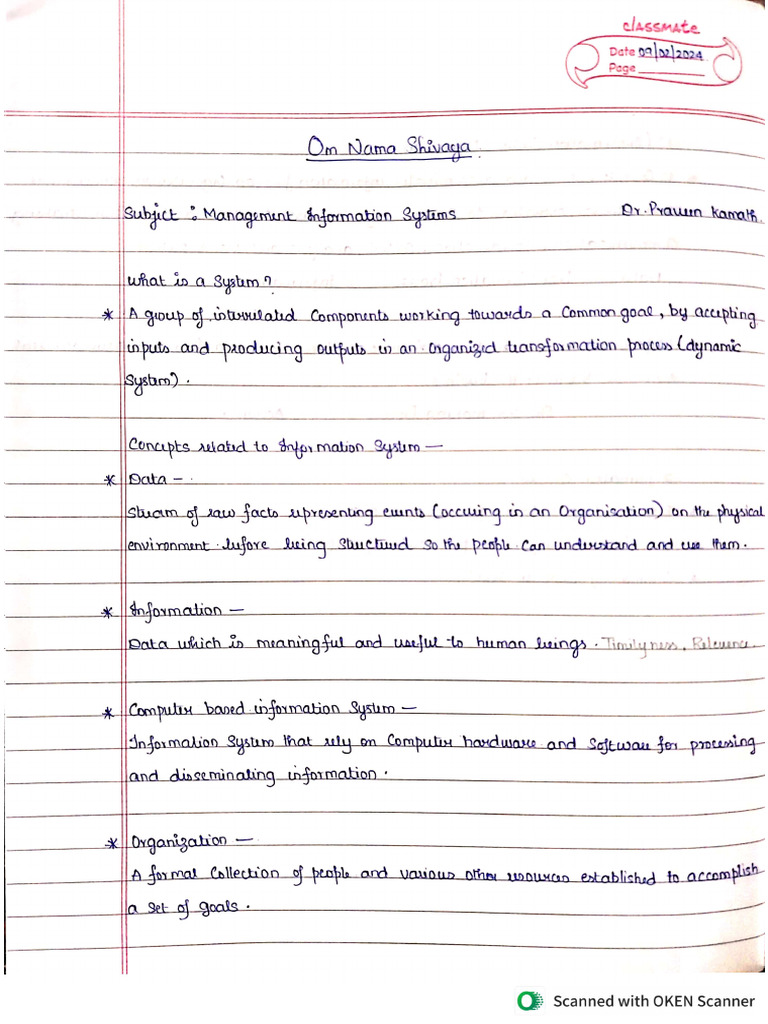 classmate
Date 09/02/2024
Page
Om Nama Shivaya.
Subject : Management Information Systems Dr. Praveen Kamath.
What is a System?
* A group of interrelated Components working towards a Common goal, by accepting
inputs and producing outputs in an organized transformation process (dynamic
System).
Concepts related to Information System —
* Data —
Stream of raw facts representing events (occuring in an Organisation) on the physical
environment before being structured so the people can understand and use them.
* Information —
Data which is meaningful and useful to human beings. Timilyness, Relevence.
* Computer based information System —
Information System that rely on Computer hardware and Software for processing
and disseminating information.
* Organization —
A formal Collection of people and various other resources established to accomplish
a set of goals.
Scanned with OKEN Scanner